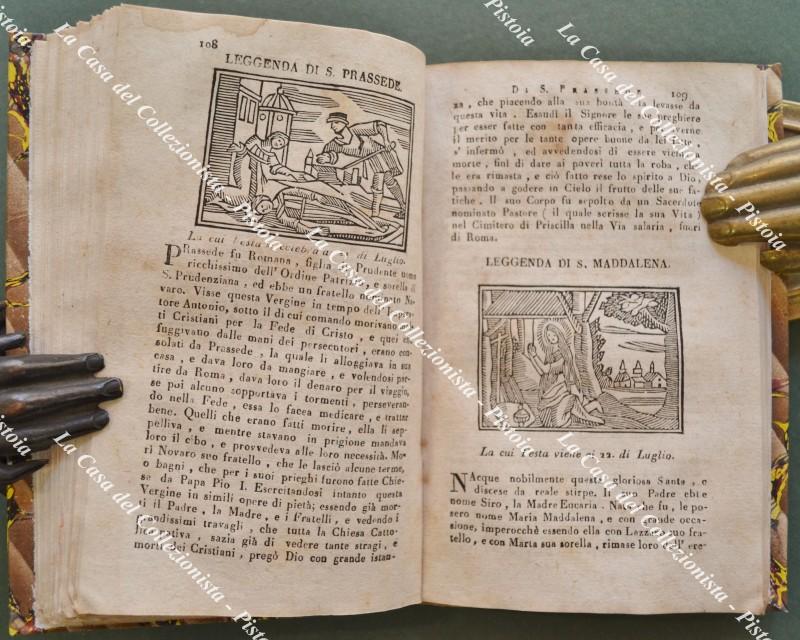 108
LEGGENDA DI S. PRASSEDE.
La cui Festa di Luglio.
PRassede fu Romana, figlia Prudente uomo
ricchissimo dell' Ordine Patrizio, e sorella di
S. Prudenziana, ed ebbe un fratello nominato No-
varo. Visse questa Vergine in tempo dell'
tore Antonio, sotto il di cui comando morivano
ti Cristiani per la Fede di Cristo, e quei
fuggivano dalle mani dei persecutori, erano con-
solati da Prassede, la quale li alloggiava in sua
casa, e dava loro da mangiare, e volendosi par-
tire da Roma, dava loro il denaro per il viaggio,
se poi alcuno sopportava i tormenti, perseveran-
do nella Fede, essa lo facea medicare, e trattar
bene. Quelli che erano fatti morire, ella li sep-
pelliva, e mentre stavano in prigione mandava
loro il cibo, e provvedeva alle loro necessità. Mo-
rì Novaro suo fratello, che le lasciò alcune terme,
o bagni, che per i suoi prieghi furono fatte Chie-
se da Papa Pio I. Esercitandosi intanto questa
Vergine in simili opere di pietà; essendo già mor-
ti il Padre, la Madre, e i Fratelli, e vedendo i
grandissimi travagli, che tutta la Chiesa Catto-
lica pativa, sazia già di vedere tante stragi, e
morti dei Cristiani, pregò Dio con grande istan-
DI S. PRASSEDE. 109
za, che piacendo alla sua bontà la levasse da
questa vita. Esaudì il Signore le sue preghiere
per esser fatte con tanta efficacia, e per averne
il merito per le tante opere buone da lei fatte,
s'infermò, ed avvedendosi di essere vicina a
morte, finì di dare ai poveri tutta la roba, che
le era rimasta, e ciò fatto rese lo spirito a Dio,
passando a godere in Cielo il frutto delle sue fa-
tiche. Il suo Corpo fu sepolto da un Sacerdote
nominato Pastore (il quale scrisse la sua Vita)
nel Cimitero di Priscilla nella Via salaria, fuori
di Roma.
LEGGENDA DI S. MADDALENA.
La cui Festa viene ai 22. di Luglio.
NAcque nobilmente questa gloriosa Santa, e
discese da reale stirpe. Il suo Padre ebbe
nome Siro, la Madre Eucaria. Nata che fu, le po-
sero nome Maria Maddalena, e con grande occa-
sione, imperocchè essendo ella con Lazzaro suo fra-
tello, e con Marta sua sorella, rimase loro dell' ere-
La Casa del Collezionista - Pistoia
La Casa del Collezionista - Pistoia
La Casa del Collezionista - Pistoia
La Casa del Collezionista - Pistoia